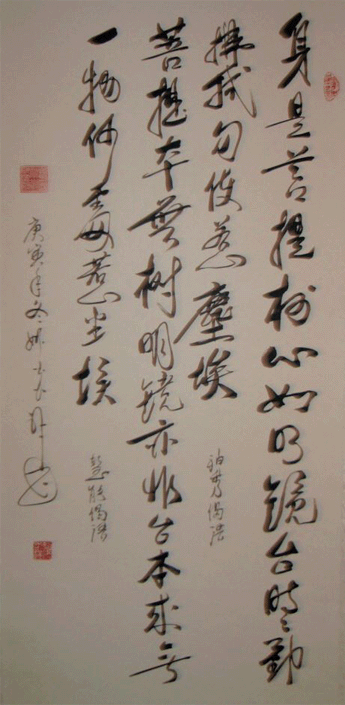 身是菩提树心如明镜台时时勤
拂拭勿使惹塵埃 神秀偈语
菩提本無树明镜亦非台本来無
一物何處惹尘埃 慧能偈语
庚寅年冬